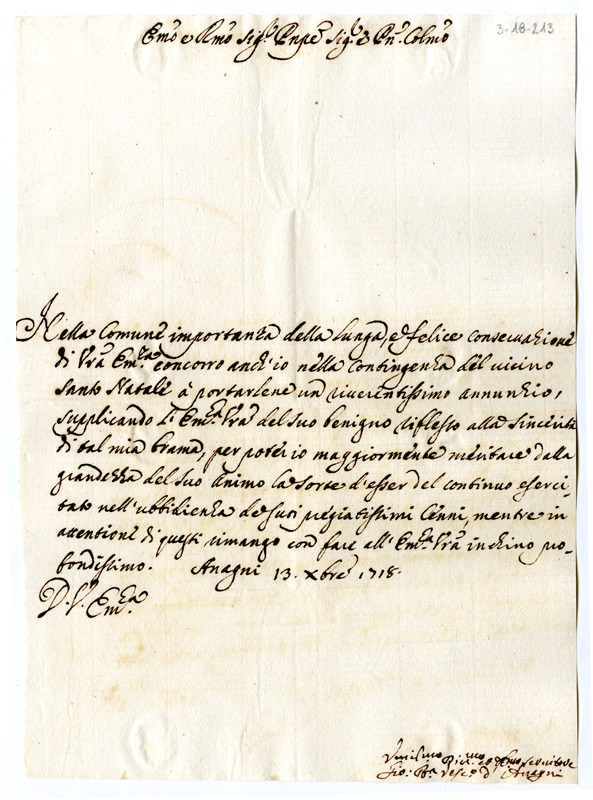 3-18-213
Em̃o e Rm̃o Sig.r Pñpe Sig.r e Pñ. Colm̃o
Nella Comune importanza della lunga, e felice conservazione
di Vrã Em.za concorro anch'io nella contingenza del vicino
Santo Natale à portarlene un riverentissimo annunzio,
supplicando l'Em.za Vrã del suo benigno riflesso alla sincerità
di tal mia brama, per poter io maggiormente meritare dalla
grandezza del suo animo la sorte d'esser del continuo eserci,
tato nell'ubbidienza de suoi pregiatissimi Cenni, mentre in
attentione di questi rimango con fare all'Em.za Vrã inchino pro-
fondissimo. Anagni 13. Xbre 1718.
D. V. Em.za
Umilmo
Gio: Bã Vesc.o d'Anagni